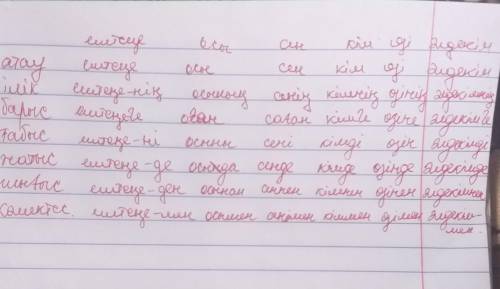 ештеңе осы сен кім өзі әлдекім
атау ештеңе осы сен кім өзі әлдекім
ілік ештеңе-нің осының сенің кімнің өзінің әлдекімнің
барыс ештеңеге оған саған кімге өзіне әлдекімге
табыс ештеңе-ні осыны сені кімді өзін әлдекімді
жатыс ештеңе-де осында сенде кімде өзінде әлдекімде
шығыс ештеңе-ден осынан сенен кімнен өзінен әлдекімнен
көмектес. ештеңе-мен осымен сенмен кіммен өзімен әлдекім-
мен.